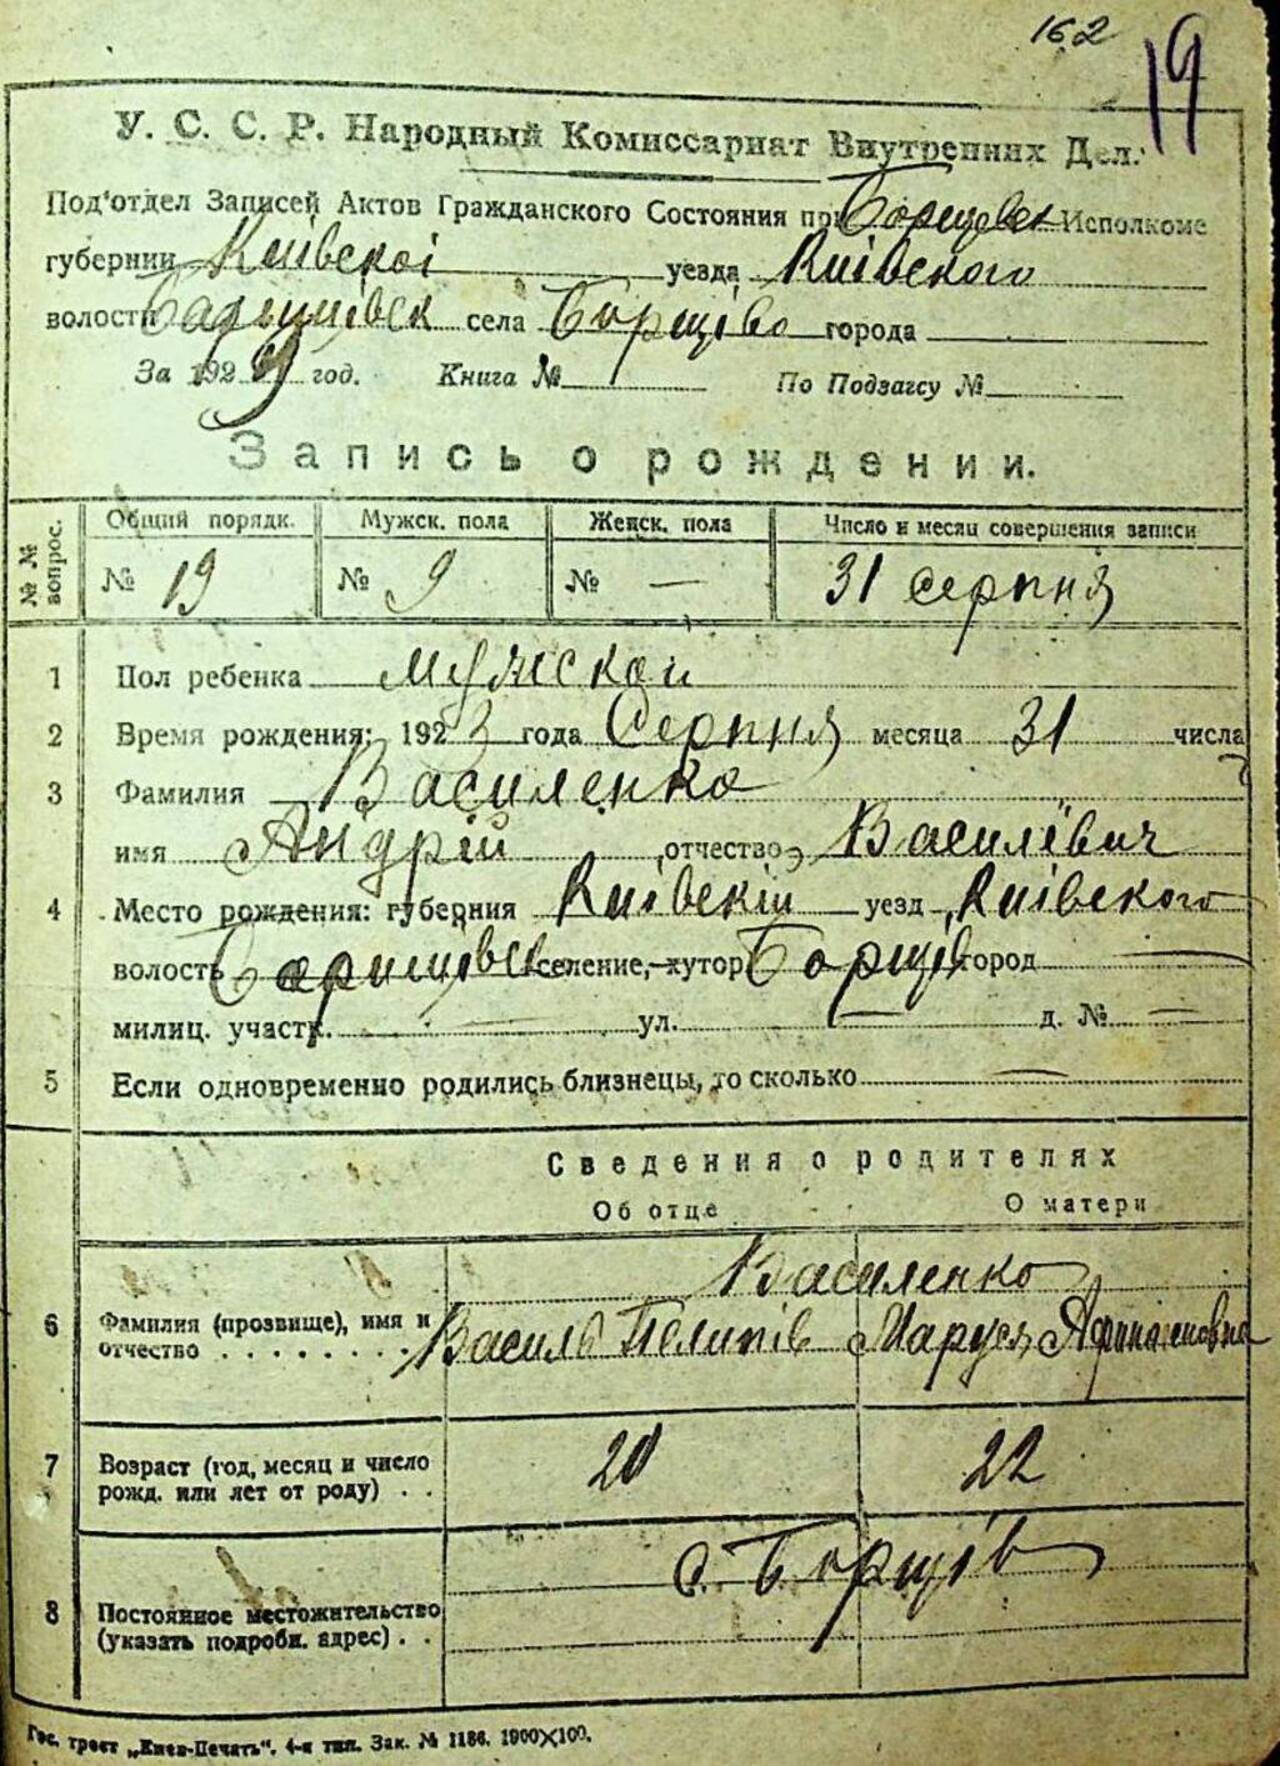 162 19
У. С. С. Р. Народный Комиссариат Внутренних Дел.
Под'отдел Записей Актов Гражданского Состояния при Борщовск Исполкоме
губернии Київскоі уезда Київского
волости села Борщіво города
За 192 год. Книга № По Подзагсу №
Запись о рождении.
№ № вопрос. Общий порядк. Мужск. пола Женск. пола Число и месяц совершения записи
№ 19 № 9 № — 31 серпня
1 Пол ребенка мужской
2 Время рождения: 1923 года Серпня месяца 31 числа
3 Фамилия Василенко
имя Андрій отчество Василёвич
4 Место рождения: губерния Київскій уезд Київского
волость Баришівск селение, хутор Борщів город —
милиц. участк. — ул. — д. № —
5 Если одновременно родились близнецы, то сколько —
Сведения о родителях
Об отце О матери
Василенко
6 Фамилия (прозвище), имя и Василь Пелипів Маруся Афанасиовна
отчество . . . . . . . .
7 Возраст (год, месяц и число 20 22
рожд. или лет от роду) . .
с. Борщів
8 Постоянное местожительство
(указать подробн. адрес) . .
Гос. трест „Киев-Печать". 4-я тип. Зак. № 1186. 1900×100.